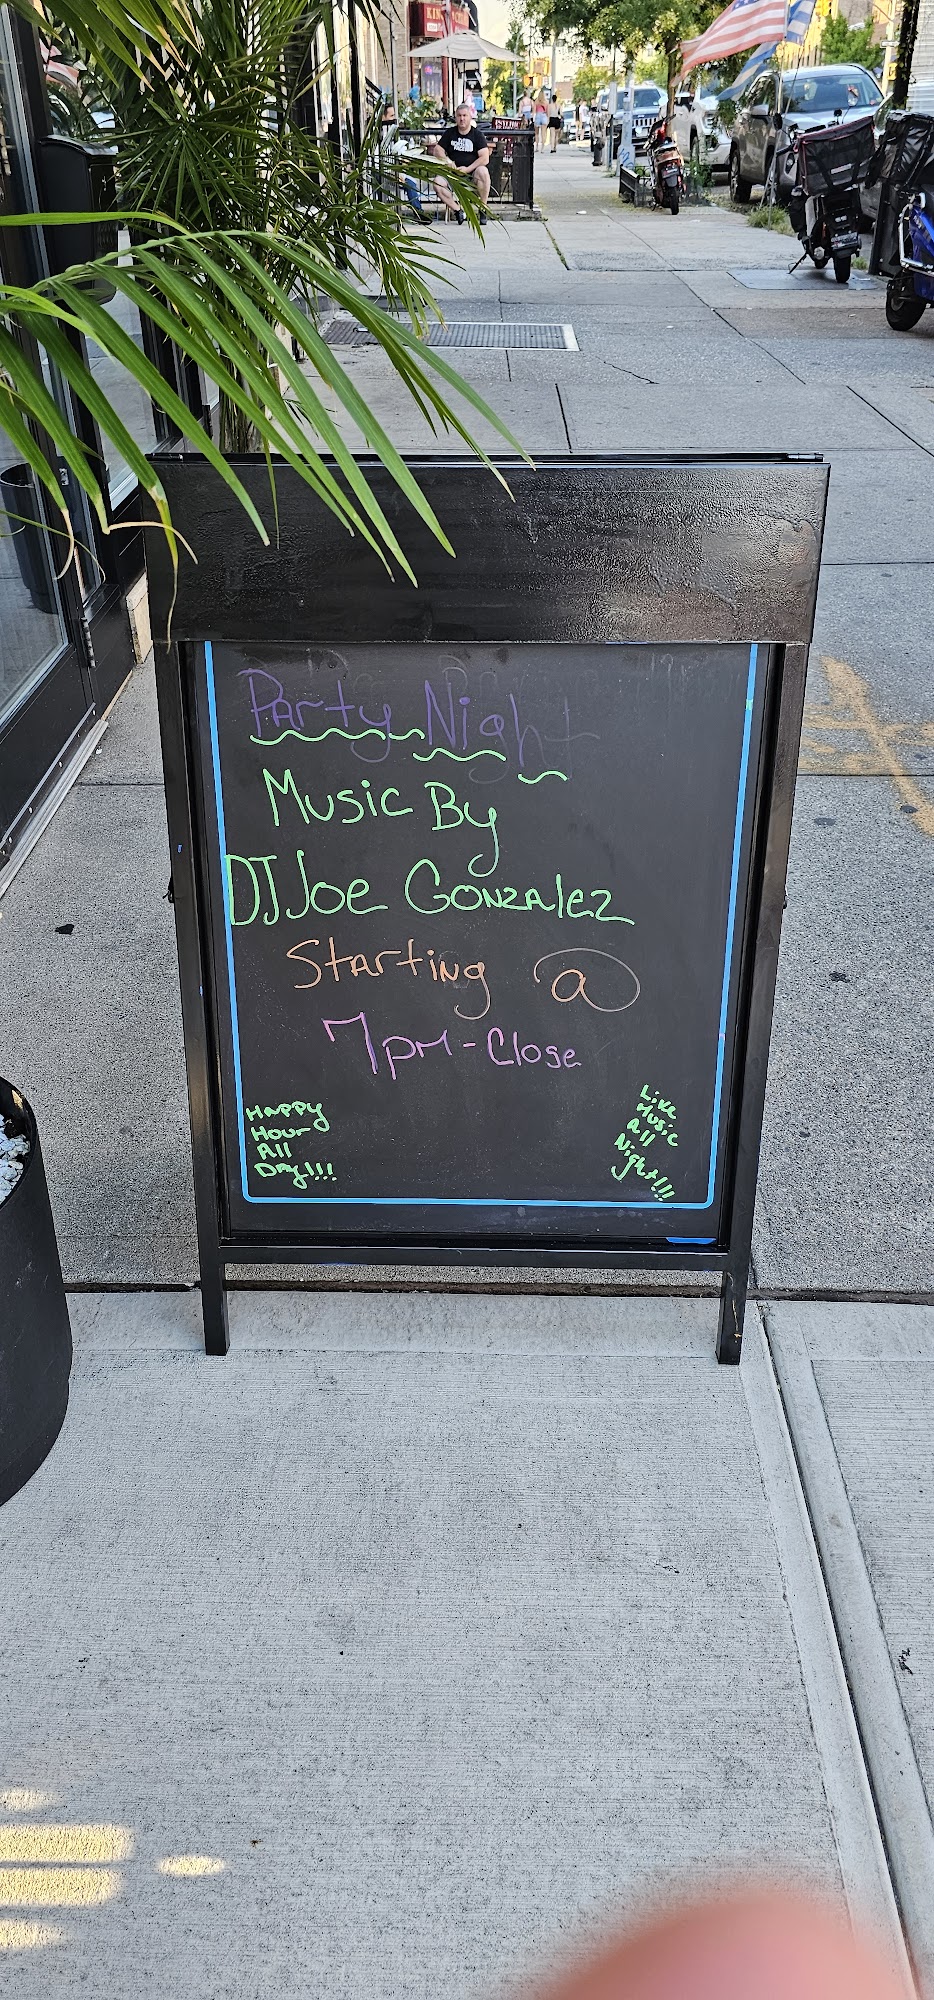 Party Night
Music By
DJ Joe Gonzalez
Starting @
7pm - Close
Happy
Hour
All
Day!!!
Live
Music
All
Night!!!